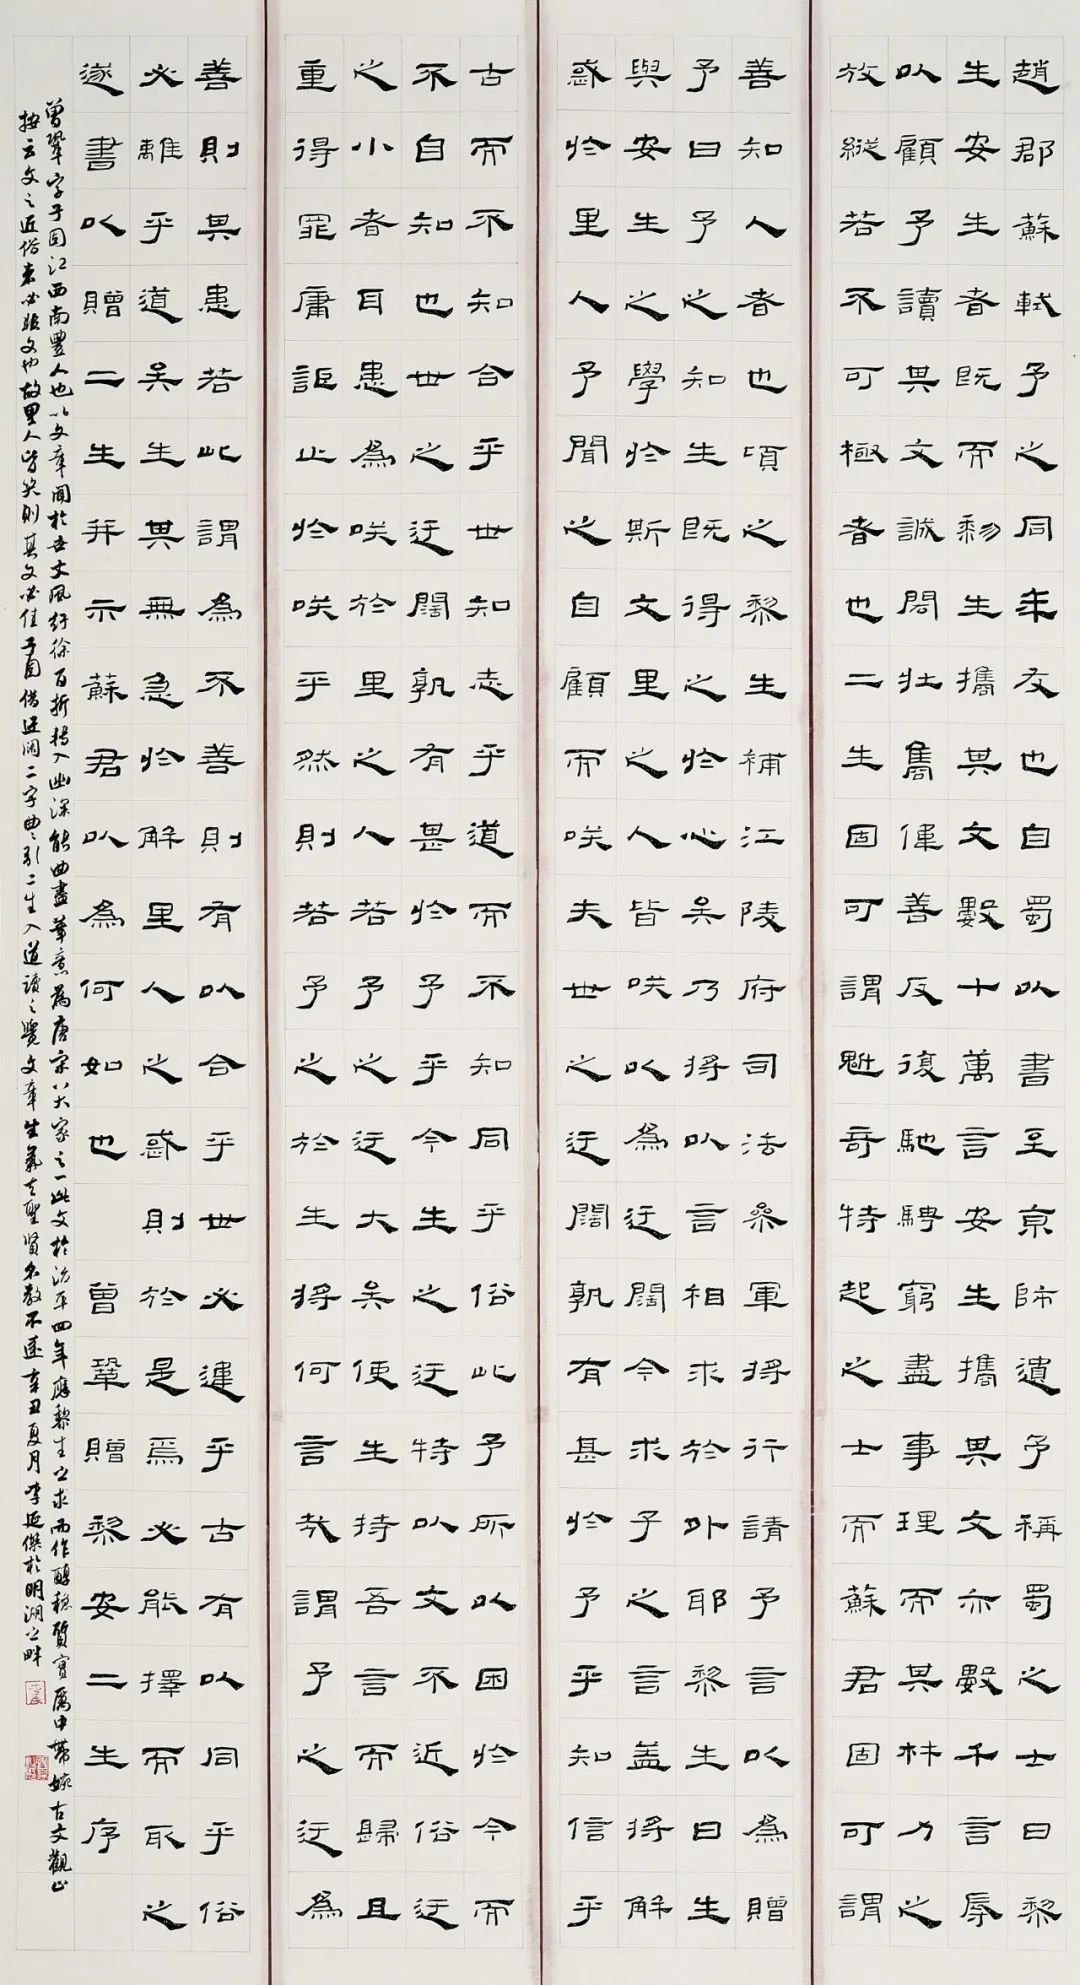 趙郡蘇軾予之同年友也自蜀以書至京師遺予稱蜀之士曰黎
生安生者既而黎生攜其文數十萬言安生攜其文亦數千言辱
以顧予讀其文誠閎壯雋偉善反復馳騁窮盡事理而其材力之
放縱若不可極者也二生固可謂魁奇特起之士而蘇君固可謂
善知人者也頃之黎生補江陵府司法參軍將行請予言以為贈
予曰予之知生既得之於心矣乃將以言相求於外耶黎生曰生
與安生之學於斯文里之人皆咲以為迂闊今求子之言蓋將解
惑於里人予聞之自顧而咲夫世之迂闊孰有甚於予乎知信乎
古而不知合乎世知志乎道而不知同乎俗此予所以困於今而
不自知也世之迂闊孰有甚於予乎今生之迂特以文不近俗迂
之小者耳患為咲於里之人若予之迂大矣使生持吾言而歸且
重得罪庸詎止於咲乎然則若予之於生將何言哉謂予之迂為
善則其患若此謂為不善則有以合乎世必違乎古有以同乎俗
必離乎道矣生其無急於解里人之惑則於是焉必能擇而取之
遂書以贈二生并示蘇君以為何如也 曾鞏贈黎安二生序
曾鞏字子固江西南豐人也以文章聞於世文風紆徐百折轉入幽深能曲盡筆意為唐宋八大家之一此文於治平四年應黎生之求而作醇穩質實中帶婉古文觀止
按云文之近俗者必非文也故里人皆笑則其文必佳子固借迂闊二字曲曲引二生入道讀之覺文章生氣去聖賢名教不遠辛丑夏月李延傑於明湖之畔